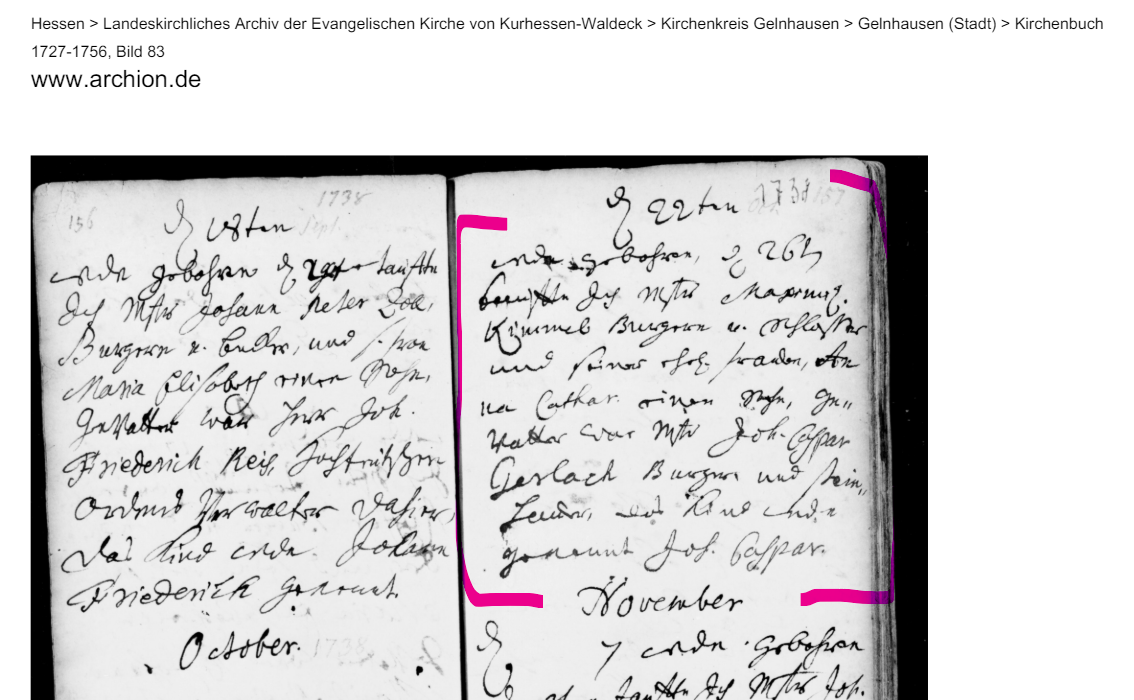 Hessen > Landeskirchliches Archiv der Evangelischen Kirche von Kurhessen-Waldeck > Kirchenkreis Gelnhausen > Gelnhausen (Stadt) > Kirchenbuch
1727-1756, Bild 83
www.archion.de
156
1738
d 18ten
wrde gebohren d tauffte
Ich Mstr Johann Peter
Burgern u. und s. frau
Maria Elisabeth einen Sohn,
Gevatter war Herr Joh.
Friederich Reis,
Ordens Verwalter dahier,
das Kind wrde Johann
Friederich genannt.
October. 1738
157
d 22ten
wrde gebohren, d 26t
tauffte Ich Mstr
Kimmel Burgern u. Schlosser
und seiner ehel. frauen, An
na Cathar. einen Sohn, Ge„
vatter war Mstr Joh. Caspar
Gerlach Burger und Stein„
das Kind wrde
genannt Joh. Caspar.
November
d 7 wrde gebohren
tauffte Ich Mstr Joh.